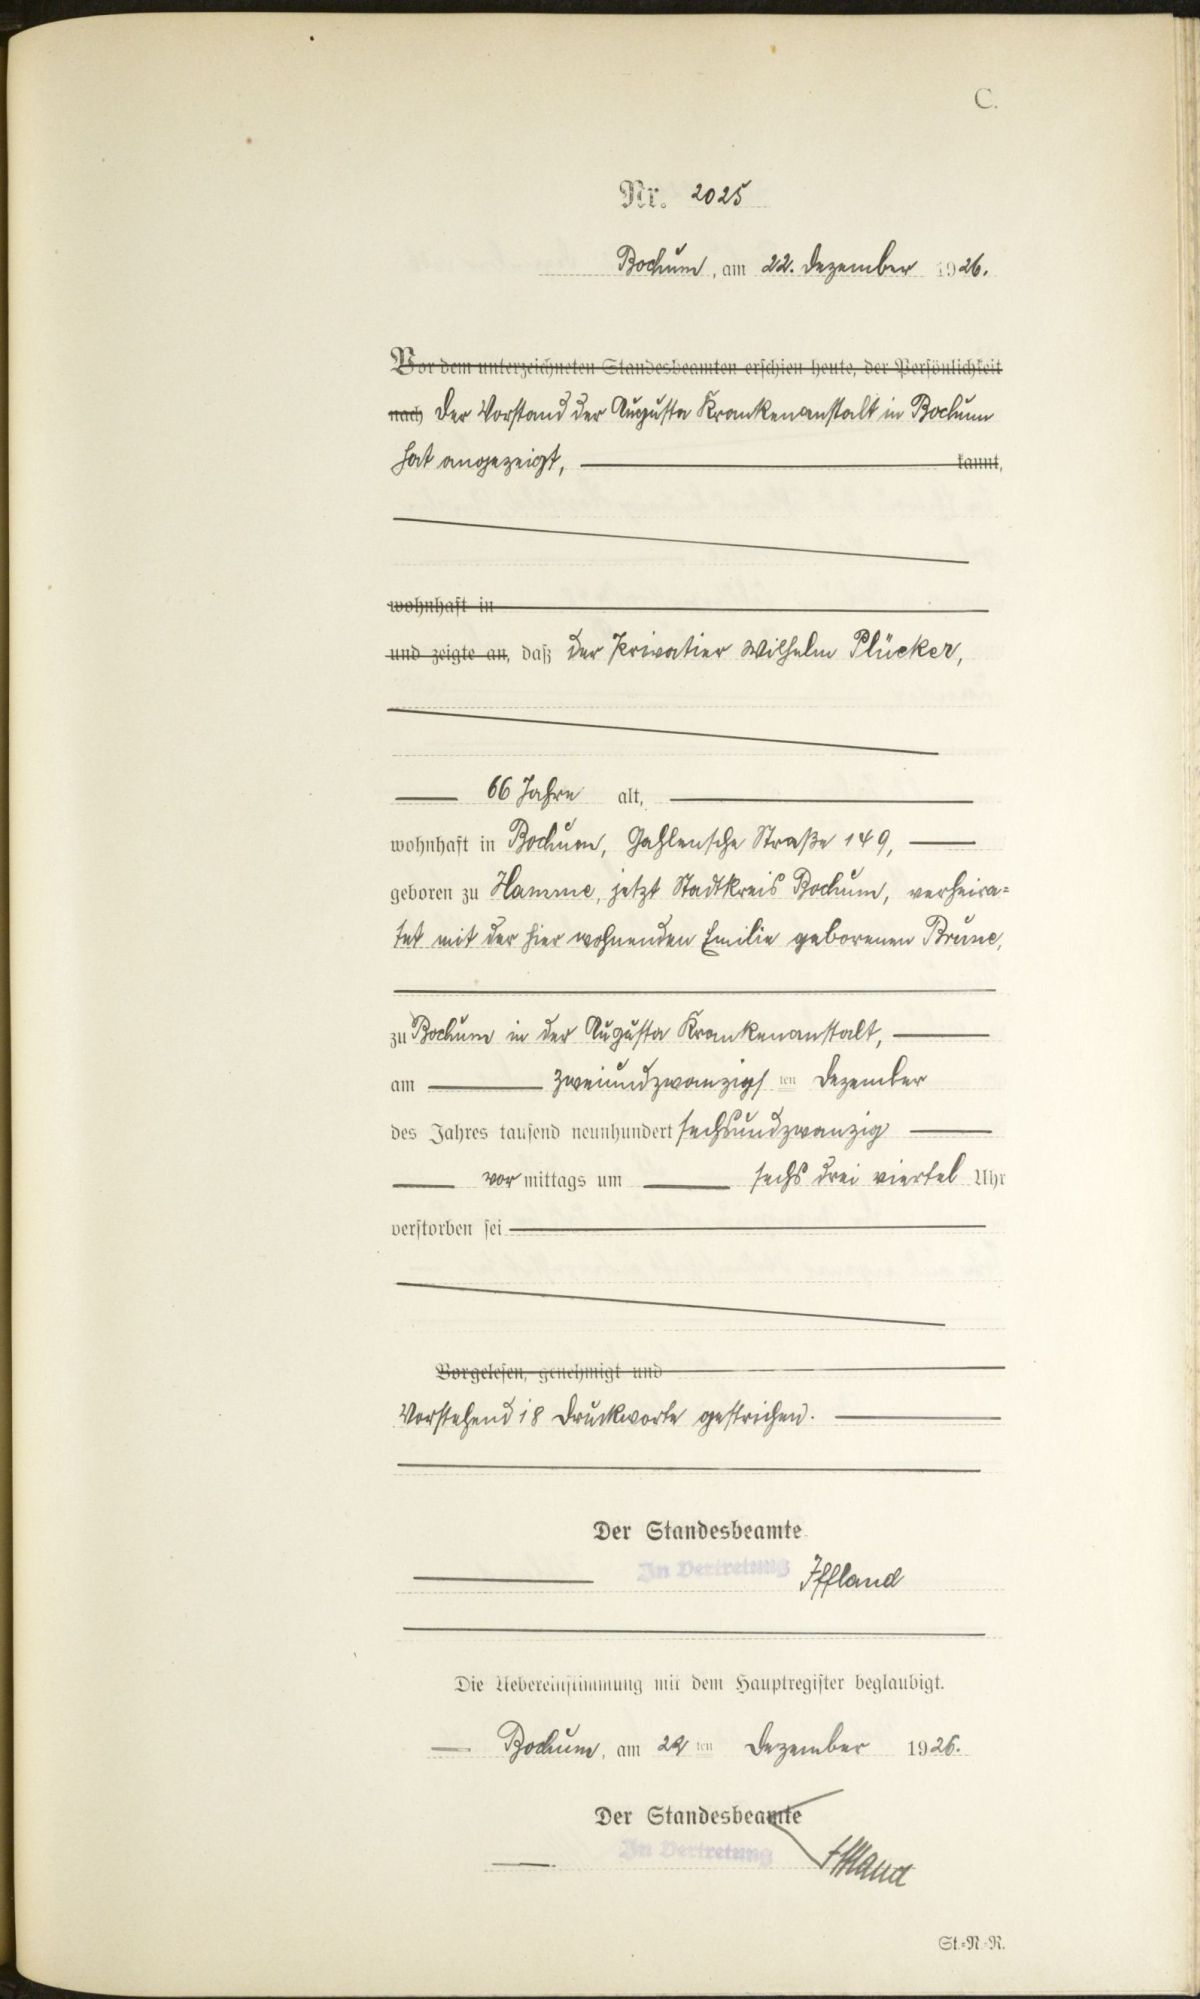 C.
Nr. 2025
Bochum, am 22. Dezember 1926.
Vor dem unterzeichneten Standesbeamten erschien heute, der Persönlichkeit
nach Der Vorstand der Augusta Krankenanstalt in Bochum
hat angezeigt, kannt,
wohnhaft in
und zeigte an, daß der Privatier Wilhelm Plücker,
66 Jahre alt,
wohnhaft in Bochum, Gahlensche Straße 149,
geboren zu Hamme, jetzt Stadtkreis Bochum, verheira=
tet mit der hier wohnenden Emilie geborenen Brune,
zu Bochum in der Augusta Krankenanstalt,
am zweiundzwanzigsten Dezember
des Jahres tausend neunhundert sechsundzwanzig
vormittags um sechs drei viertel Uhr
verstorben sei
Vorgelesen, genehmigt und
Vorstehend 18 Druckworte gestrichen.
Der Standesbeamte
In Vertretung Iffland
Die Uebereinstimmung mit dem Hauptregister beglaubigt.
Bochum, am 22ten Dezember 1926.
Der Standesbeamte
In Vertretung Iffland
St.=N.=R.